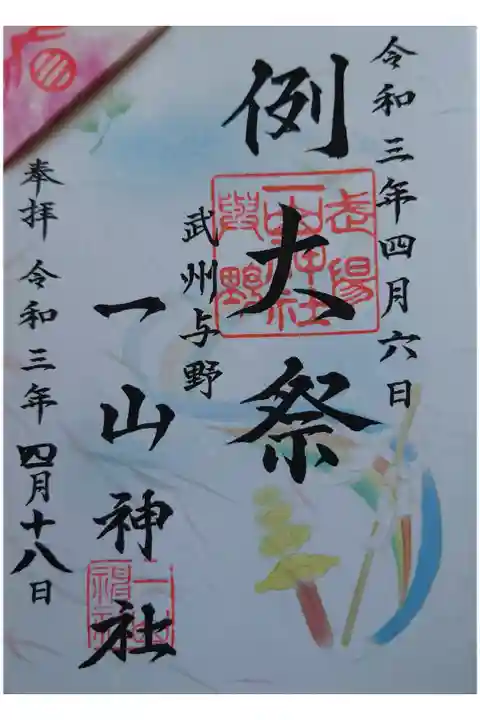 令和三年四月六日
例大祭
武州与野
一山神社
奉拝 令和三年 四月十八日
武陽
一山神社
與野